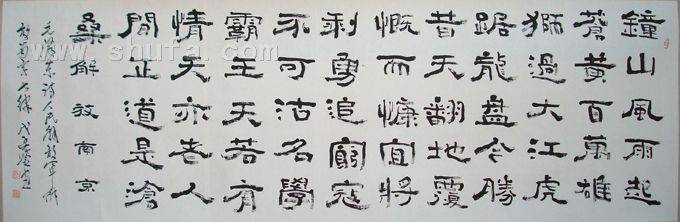 鐘山風雨起
蒼黃百萬雄
獅過大江虎
踞龍盤今勝
昔天翻地覆
慨而慷宜將
剩勇追窮寇
不可沽名學
霸王天若有
情天亦老人
間正道是滄
桑解放南京
毛澤東詩人民解放軍
南京
www.shufa.com